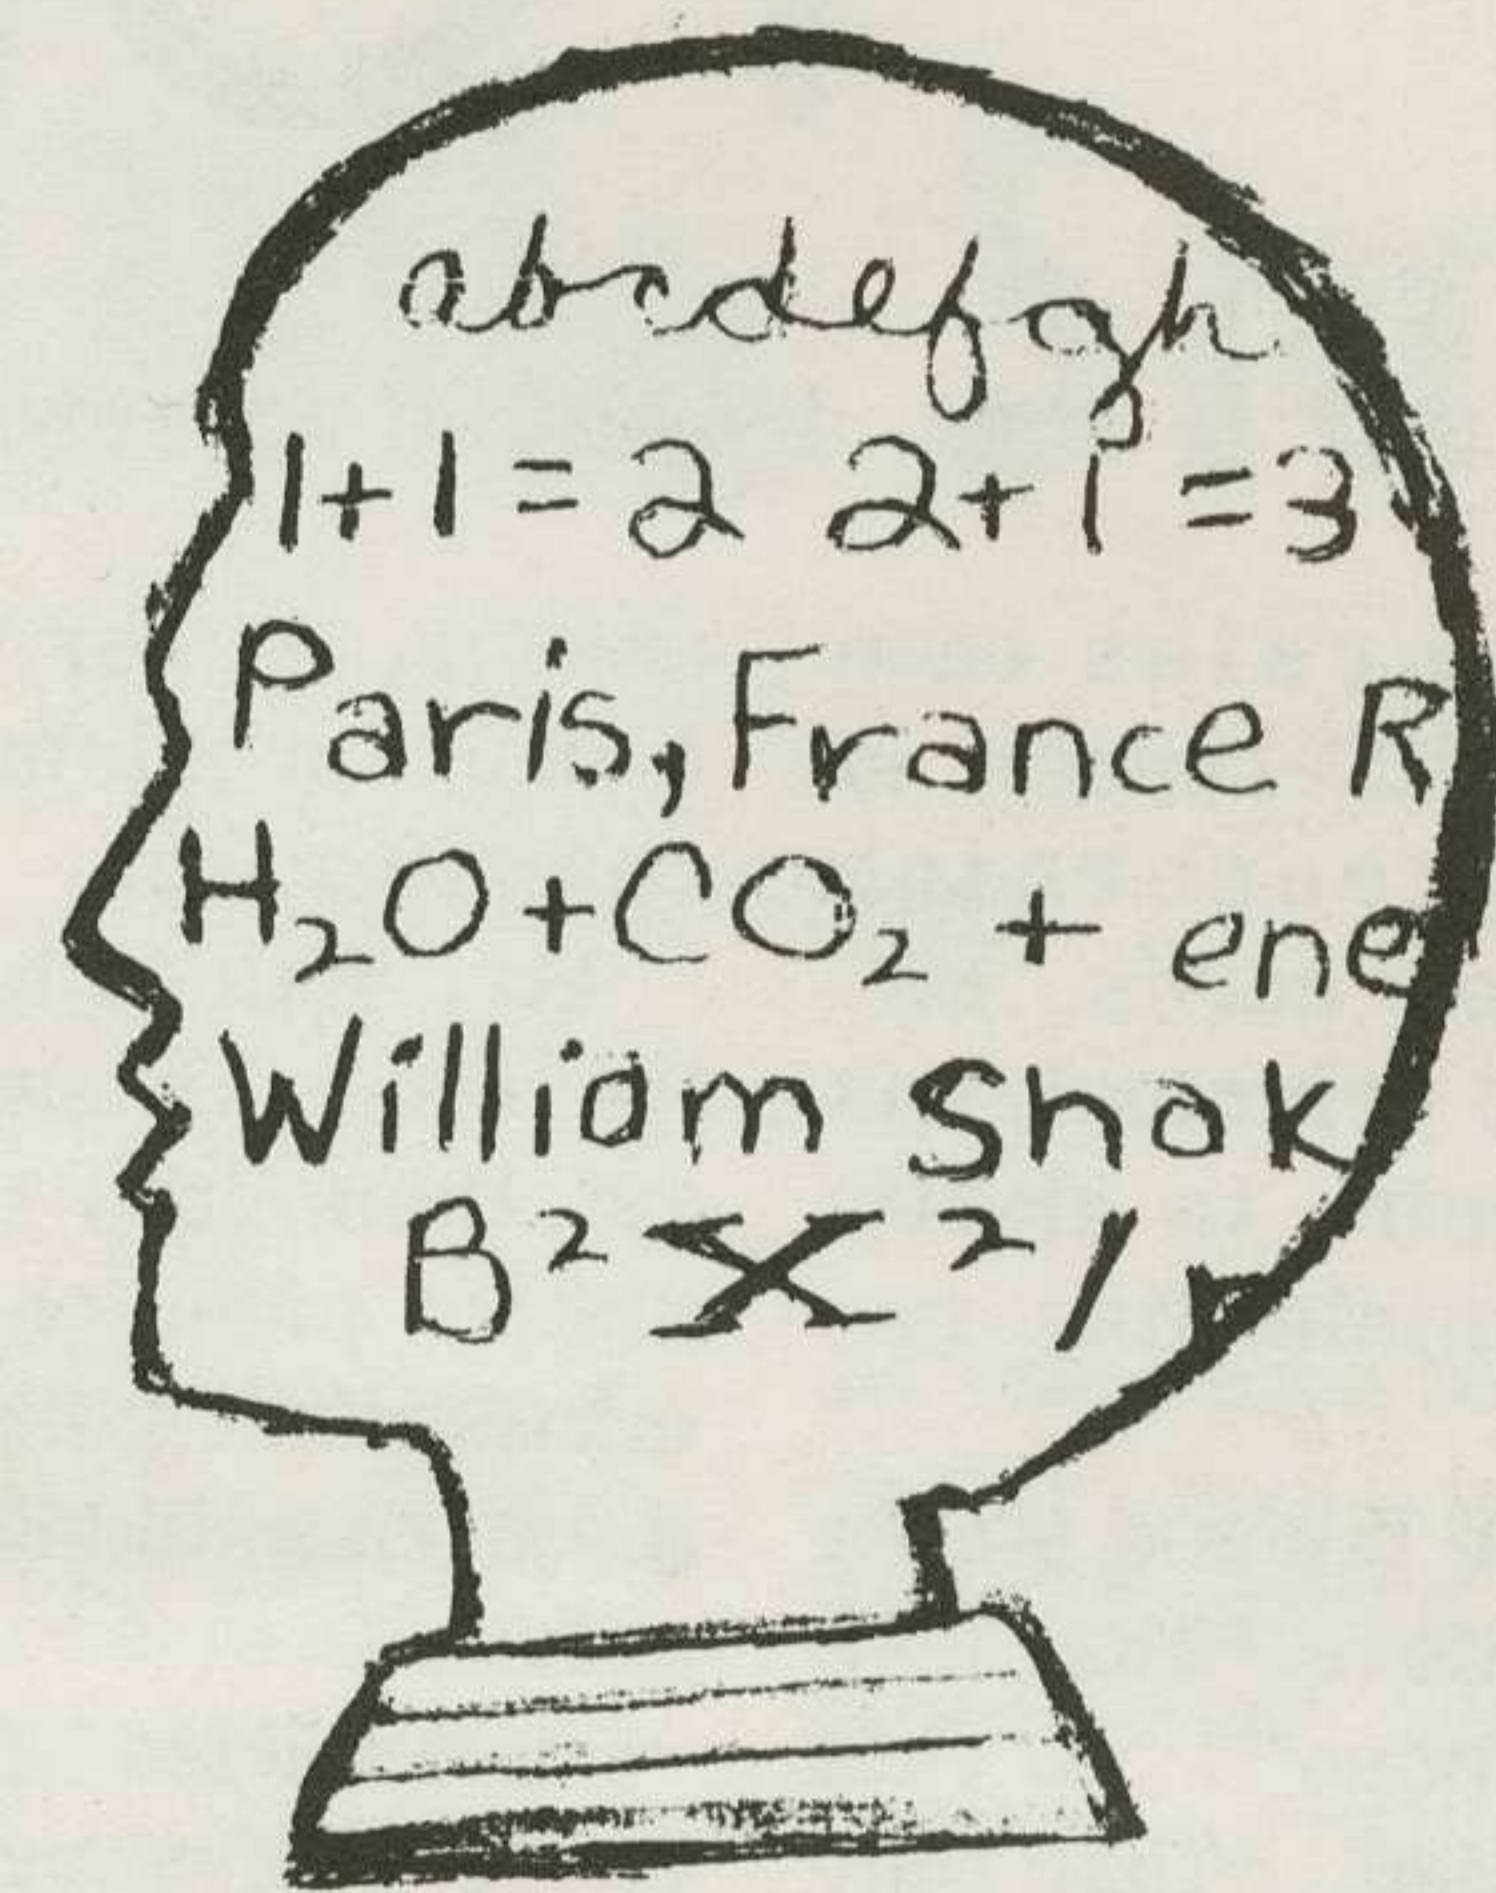 abcdefgh
1+1=2 2+1=3
Paris, France R
H₂O+CO₂ + ene
William Shak
B² X² /